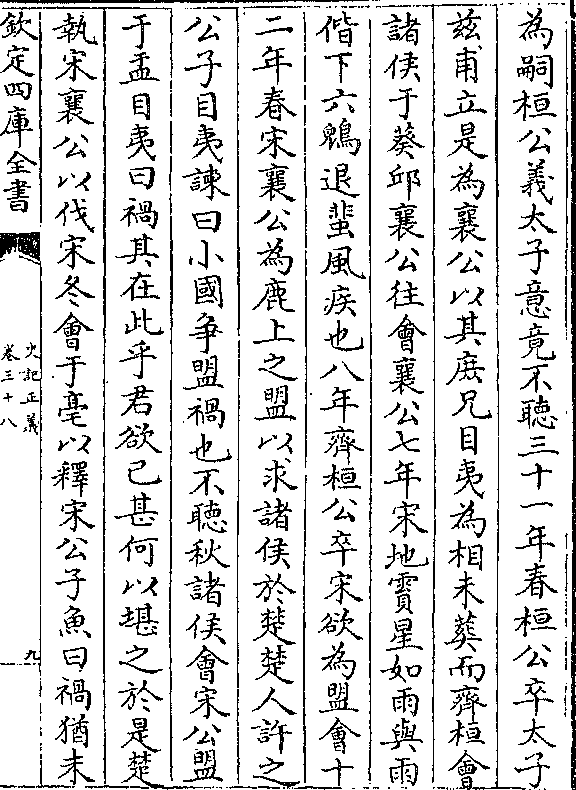 為嗣桓公義太子意竟不聽三十一年春桓公卒太子
兹甫立是為襄公以其庶兄目夷為相未葬而齊桓會
諸侯于葵邱襄公往會襄公七年宋地霣星如雨與雨
偕下六鶂退蜚風疾也八年齊桓公卒宋欲為盟會十
二年春宋襄公為鹿上之盟以求諸侯於楚楚人許之
公子目夷諫曰小國争盟禍也不聽秋諸侯會宋公盟
于盂目夷曰禍其在此乎君欲已甚何以堪之於是楚
執宋襄公以伐宋冬會于亳以釋宋公子魚曰禍猶未
欽定四庫全書
史記正義
卷三十八
九